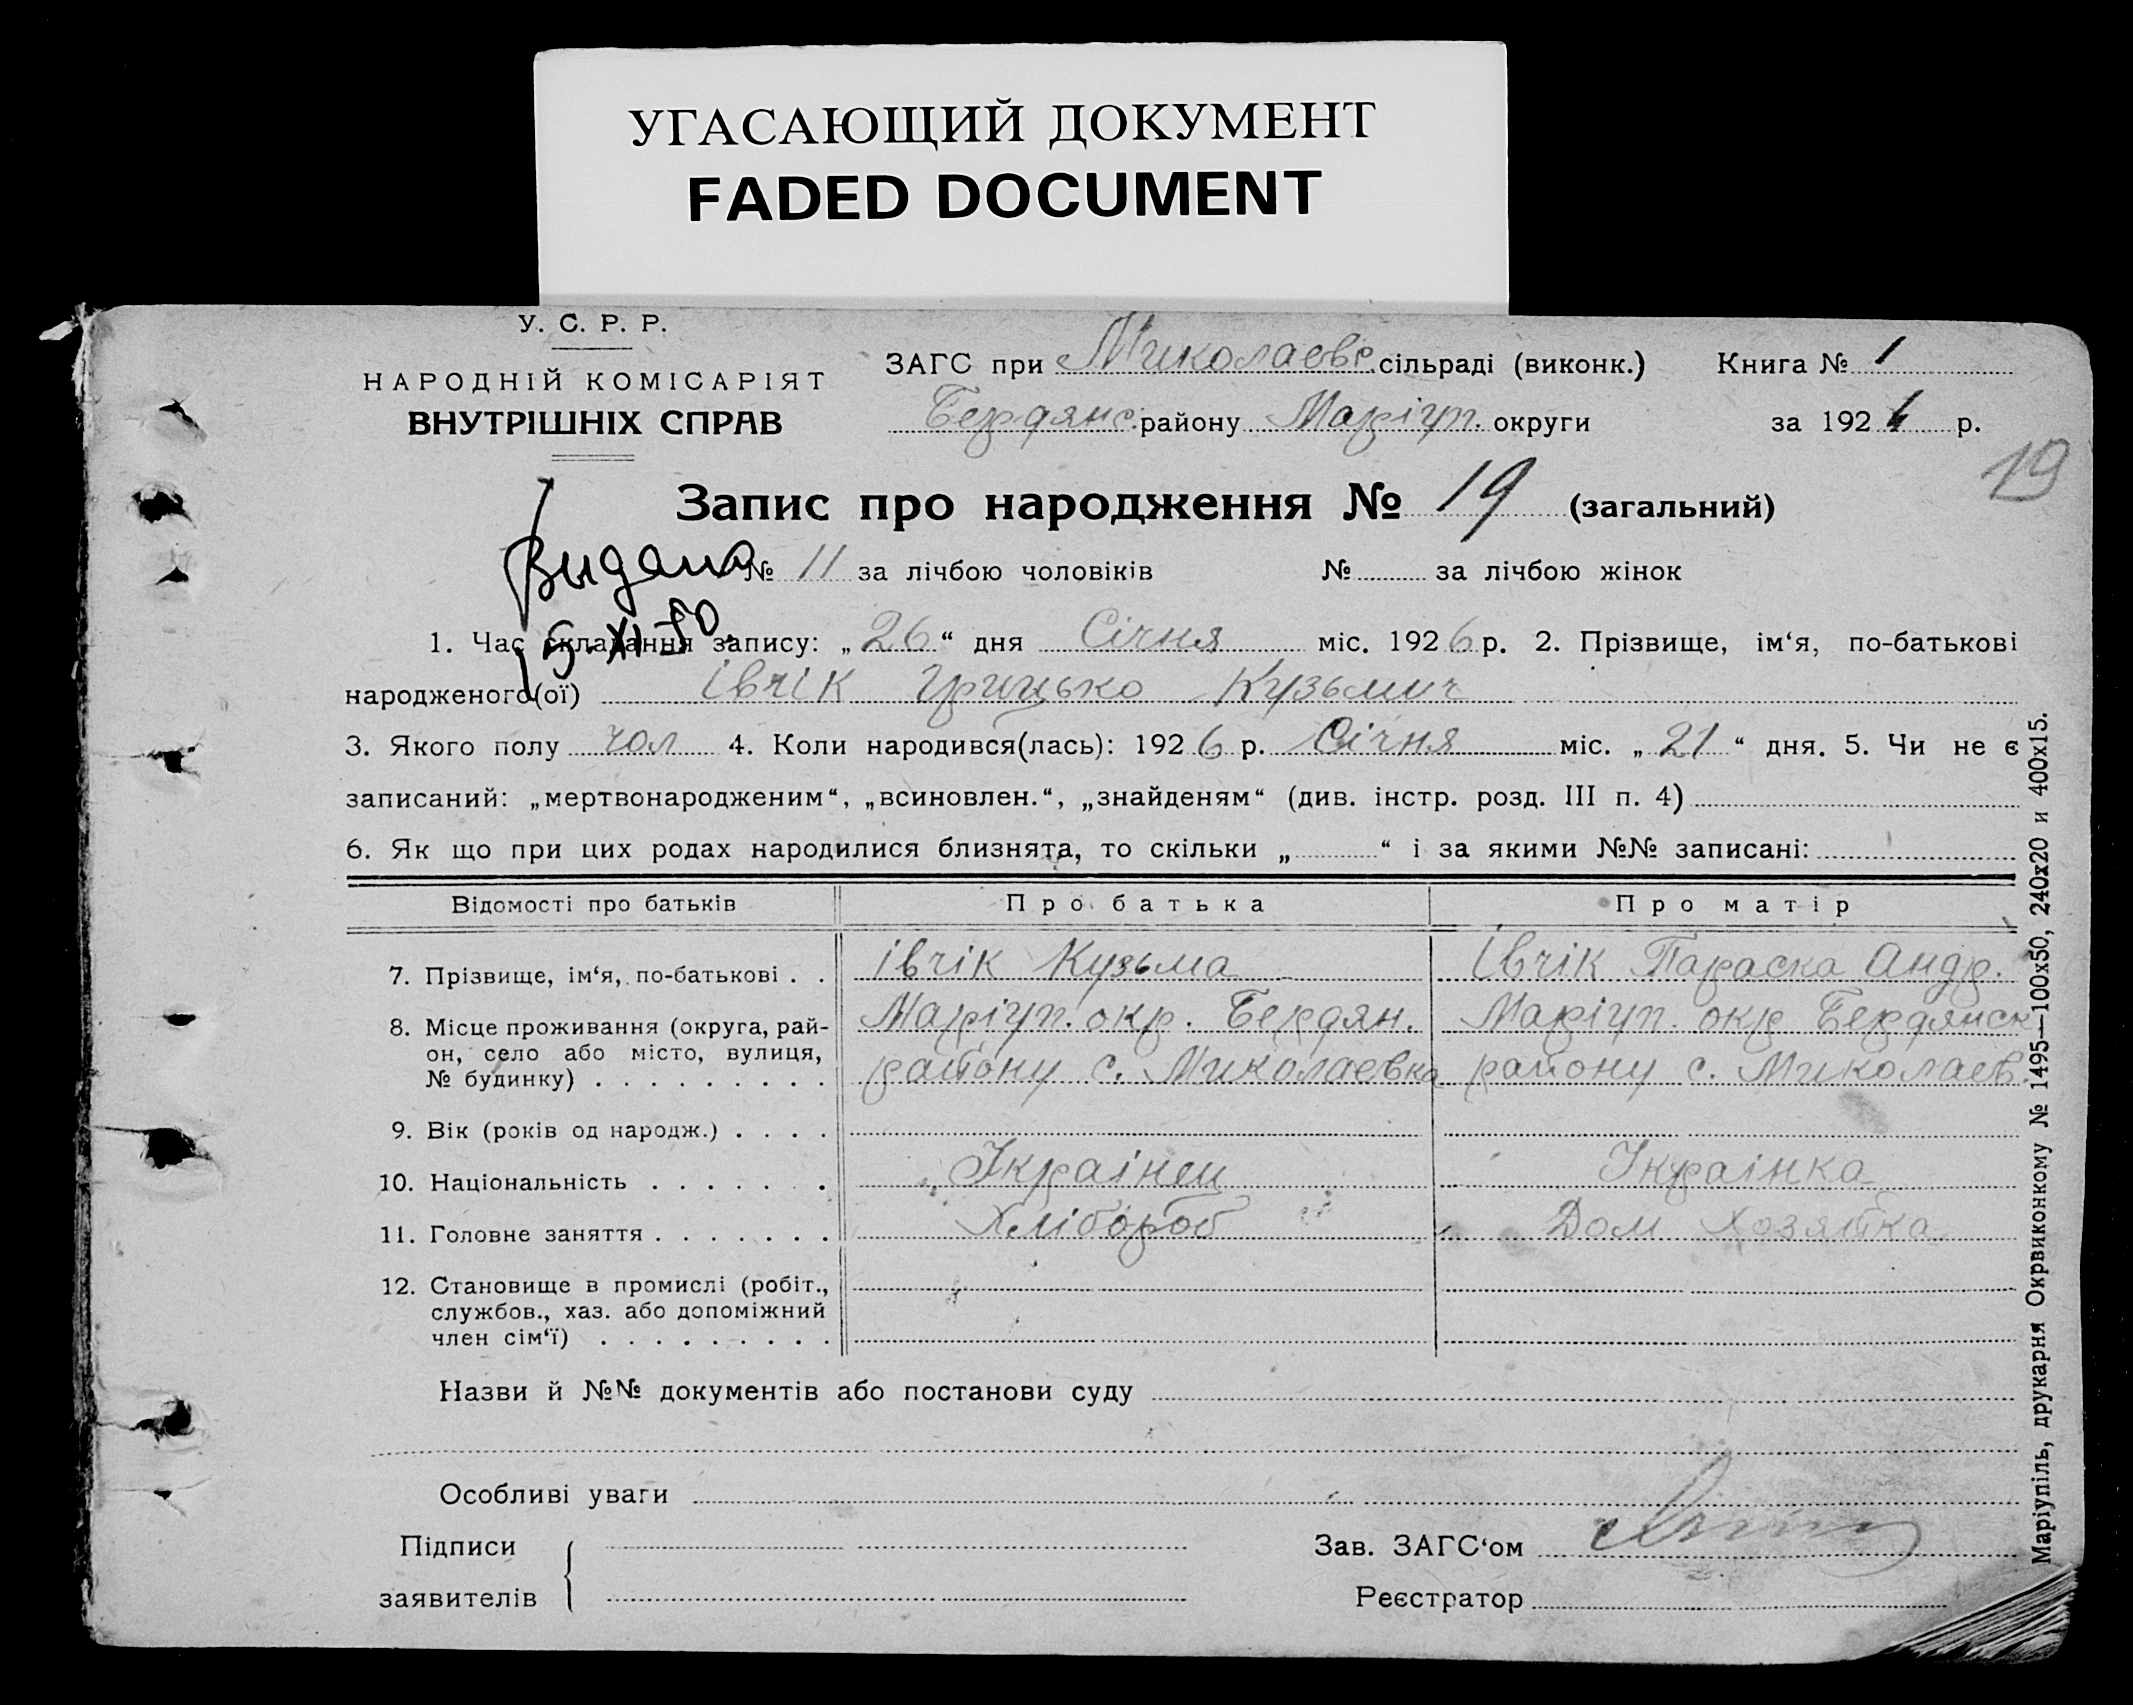 УГАСАЮЩИЙ ДОКУМЕНТ
FADED DOCUMENT
У. С. Р. Р.
НАРОДНІЙ КОМІСАРІЯТ
ВНУТРІШНІХ СПРАВ
ЗАГС при Миколаевс. сільраді (виконк.) Книга № 1
Бердянс. району Маріуп. округи за 1926 р.
19
Запис про народження № 19 (загальний)
Выдано
№ 11 за лічбою чоловіків № за лічбою жінок
5-XI-50.
1. Час складання запису: „26“ дня Січня міс. 1926 р. 2. Прізвище, ім‘я, по-батькові
народженого(ої) Івчік Грицько Кузьмич
3. Якого полу чол 4. Коли народився(лась): 1926 р. Січня міс. „21“ дня. 5. Чи не є
записаний: „мертвонародженим“, „всиновлен.“, „знайденям“ (див. інстр. розд. III п. 4)
6. Як що при цих родах народилися близнята, то скільки „ “ і за якими №№ записані:
Відомості про батьків Про батька Про матір
7. Прізвище, ім‘я, по-батькові . . Івчік Кузьма Івчік Параска Андр.
8. Місце проживання (округа, рай- Маріуп. окр. Бердян. Маріуп. окр Бердянск
он, село або місто, вулиця,
№ будинку) . . . . . . . . . району с. Миколаевка району с. Миколаев.
9. Вік (років од народж.) . . . .
10. Національність . . . . . . . Украінец Украінка
11. Головне заняття . . . . . . . Хлібороб Дом Хозяйка
12. Становище в промислі (робіт.,
службов., хаз. або допоміжний
член сім‘ї) . . . . . . . . .
Назви й №№ документів або постанови суду
Особливі уваги
Підписи
заявителів
Зав. ЗАГС‘ом
Реєстратор
Маріупіль, друкарня Окрвиконкому № 1495—100х50, 240х20 и 400х15.